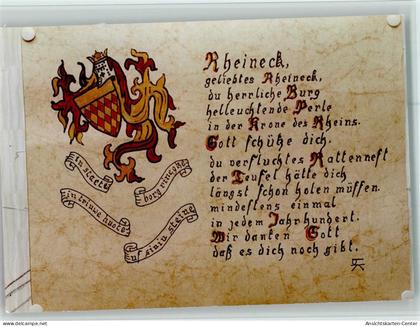 Rheineck,
geliebtes Rheineck,
du herrliche Burg
helleuchtende Perle
in der Krone des Rheins.
Gott schütze dich.
du verfluchtes Rattennest
der Teufel hätte dich
längst schon holen müssen
mindestens einmal
in jedem Jahrhundert.
Wir danken Gott
daß es dich noch gibt.
in staete
borg rinecke
in triuwe huote
uf siniu steine
Ansichtskarten-Center